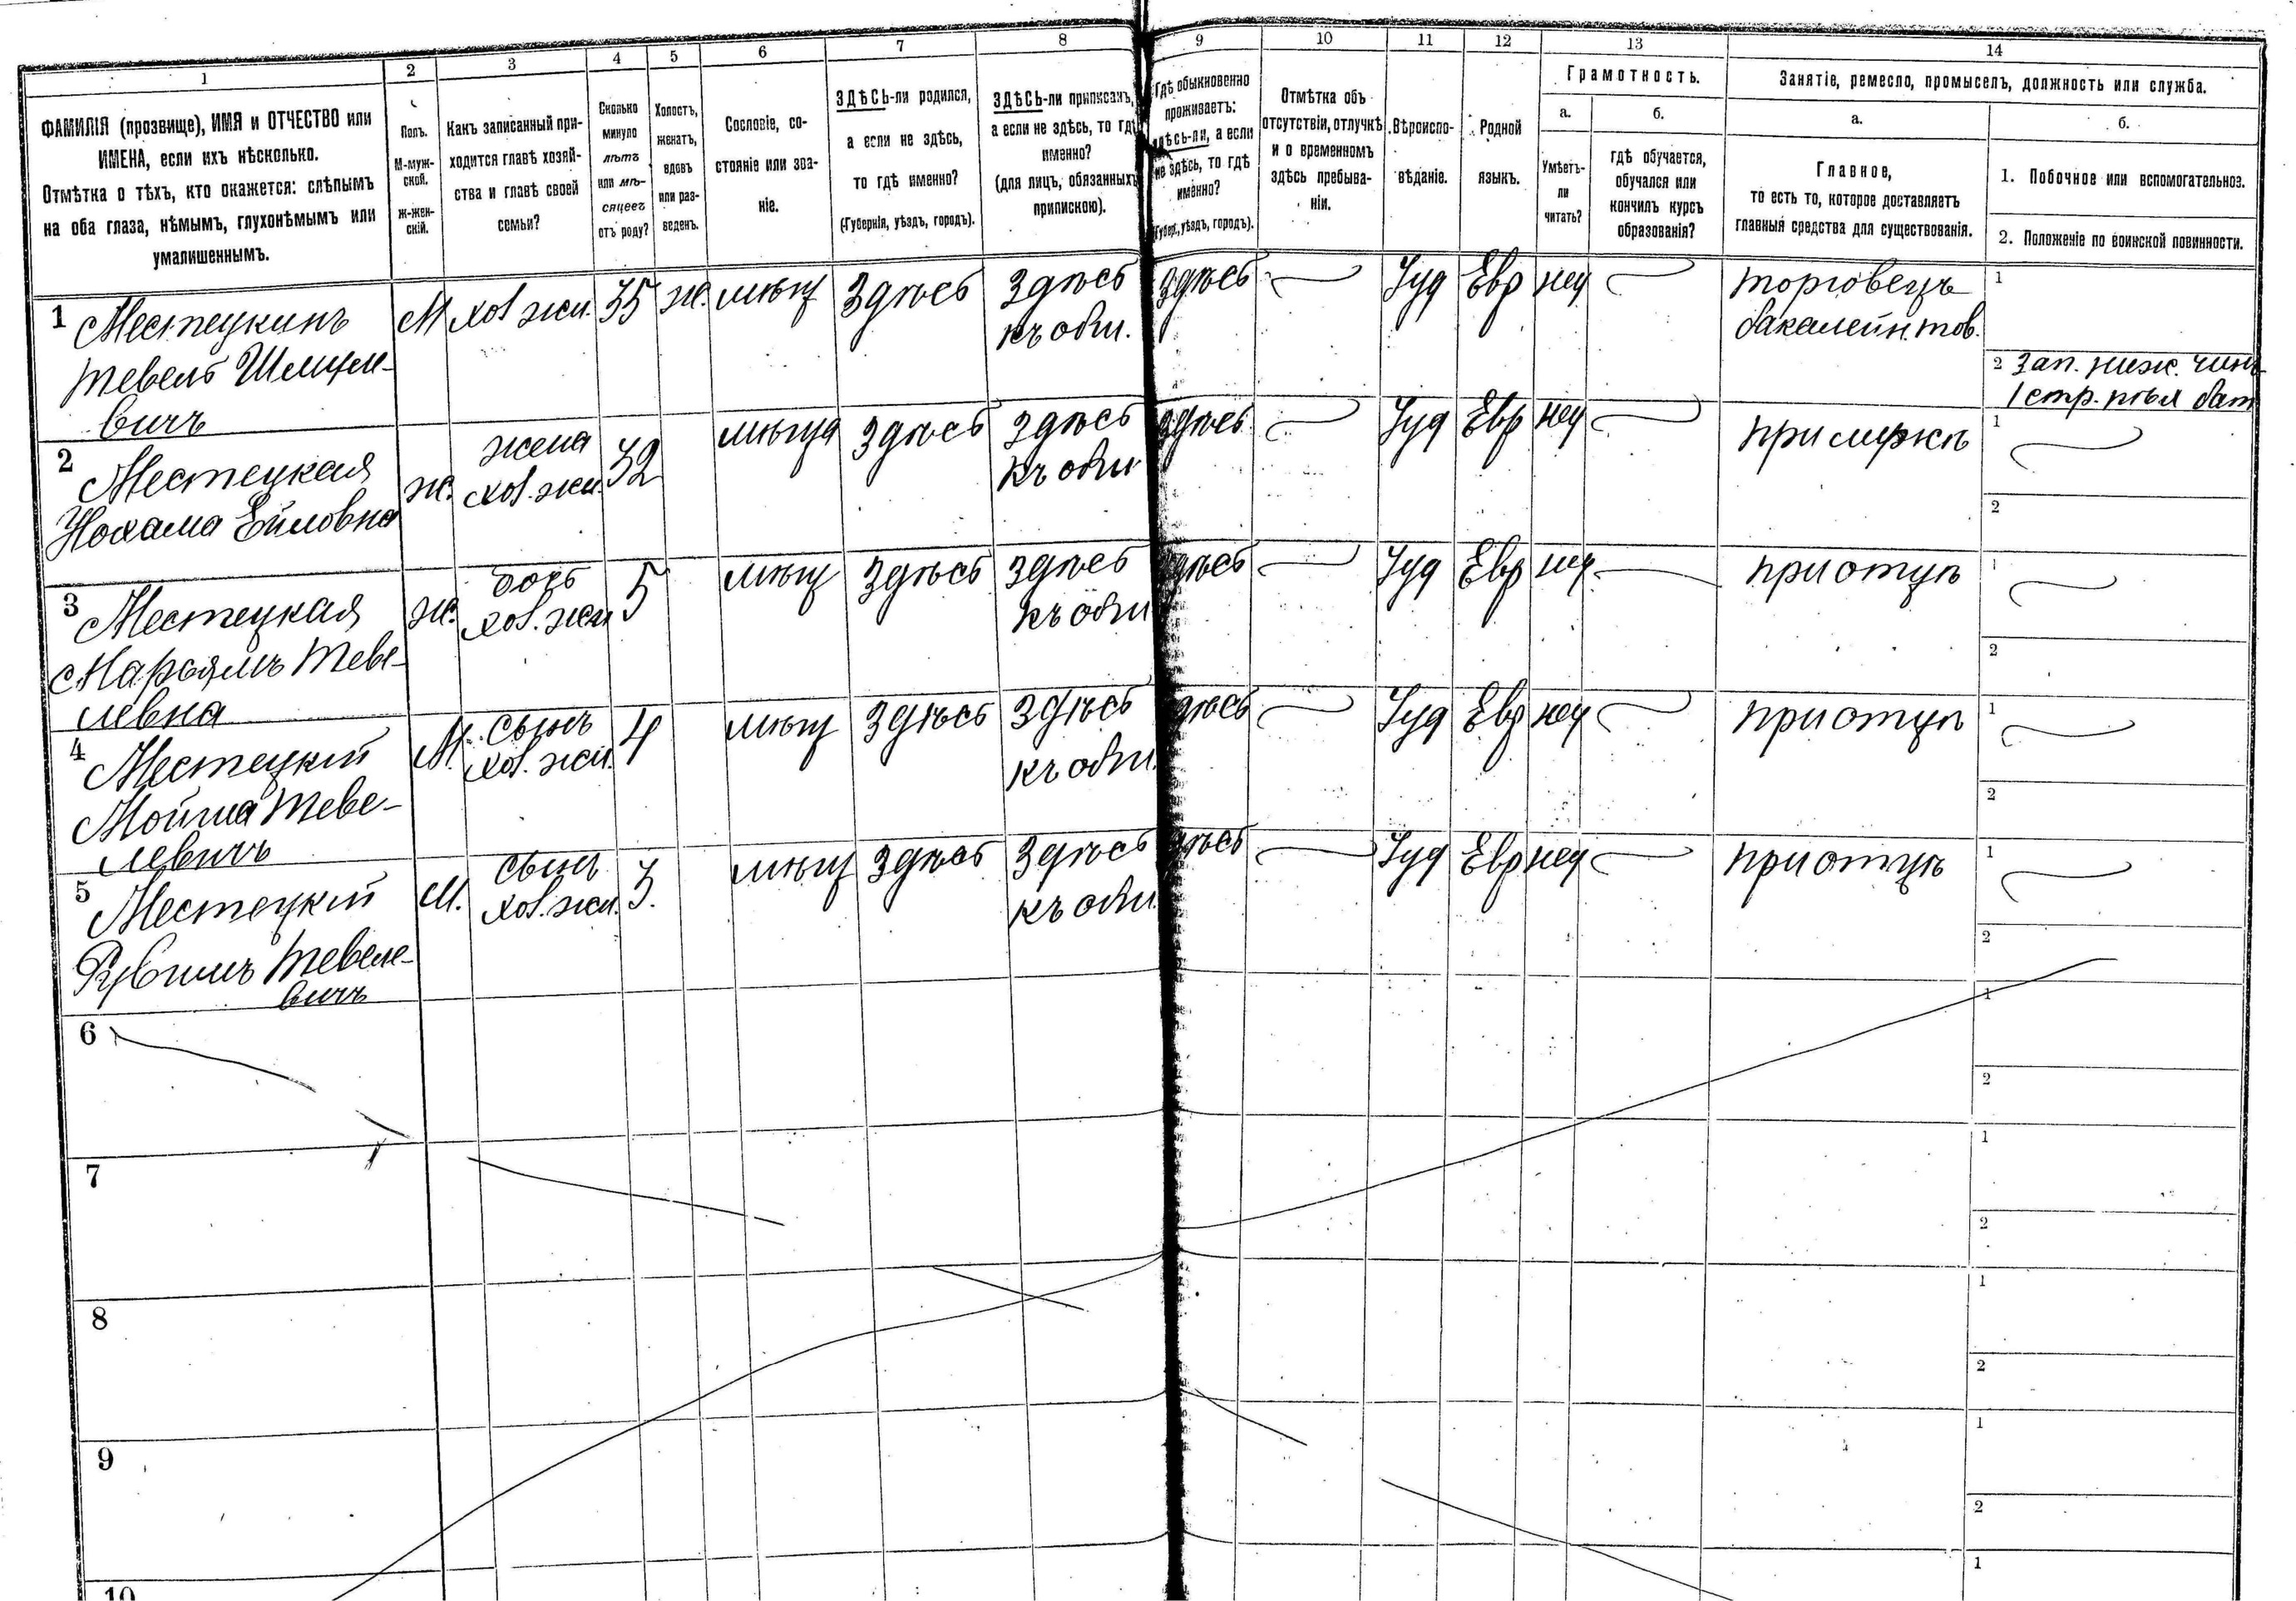 1 2 3 4 5 6 7 8 9 10 11 12 13 14
ФАМИЛІЯ (прозвище), ИМЯ и ОТЧЕСТВО или
ИМЕНА, если ихъ нѣсколько.
Отмѣтка о тѣхъ, кто окажется: слѣпымъ
на оба глаза, нѣмымъ, глухонѣмымъ или
умалишеннымъ.
Полъ.
М-муж-
ской.
Ж-жен-
скій.
Какъ записанный при-
ходится главѣ хозяй-
ства и главѣ своей
семьи?
Сколько
минуло
лѣтъ
или мѣ-
сяцевъ
отъ роду?
Холостъ,
женатъ,
вдовъ
или раз-
веденъ.
Сословіе, со-
стояніе или зва-
ніе.
ЗДѢСЬ-ли родился,
а если не здѣсь,
то гдѣ именно?
(Губернія, уѣздъ, городъ).
ЗДѢСЬ-ли приписанъ,
а если не здѣсь, то гдѣ
именно?
(для лицъ, обязанныхъ
припискою).
Гдѣ обыкновенно
проживаетъ:
здѣсь-ли, а если
не здѣсь, то гдѣ
именно?
(Губер., уѣздъ, городъ).
Отмѣтка объ
отсутствіи, отлучкѣ
и о временномъ
здѣсь пребыва-
ніи.
Вѣроиспо-
вѣданіе.
Родной
языкъ.
Грамотность.
а.
Умѣетъ-
ли
читать?
б.
гдѣ обучается,
обучался или
кончилъ курсъ
образованія?
Занятіе, ремесло, промыселъ, должность или служба.
а.
Главное,
то есть то, которое доставляетъ
главныя средства для существованія.
б.
1. Побочное или вспомогательное.
2. Положеніе по воинской повинности.
1 Местецкинъ М хоз жи. 35 ж. мѣщ Здѣсь Здѣсь здѣсь Іуд Евр нет торговецъ 1
Тевель Шлиом- къ общ. бакалейн. тов.
вичъ 2 зап. ниж. чинъ
1 стр. полк бат
2 Местецкая ж. жена 32 мѣща здѣсь здѣсь здѣсь Іуд Евр нет при мужѣ 1
Нохама Ейловна хоз. жи. къ общ 2
3 Местецкая ж. дочь 5 мѣщ здѣсь здѣсь здѣсь Іуд Евр нет при отцѣ 1
Марьямъ Теве- хоз. жи къ общ 2
левна
4 Местецкій М. сынъ 4 мѣщ здѣсь здѣсь здѣсь Іуд Евр нет при отцѣ 1
Мойша Теве- хоз. жи. къ общ. 2
левичъ
5 Местецкій М. сынъ 3. мѣщ здѣсь здѣсь здѣсь Іуд Евр нет при отцѣ 1
Рувимъ Тевеле- хоз. жи. къ общ. 2
вичъ
6 1
2
7 1
2
8 1
2
9 1
2
10 1